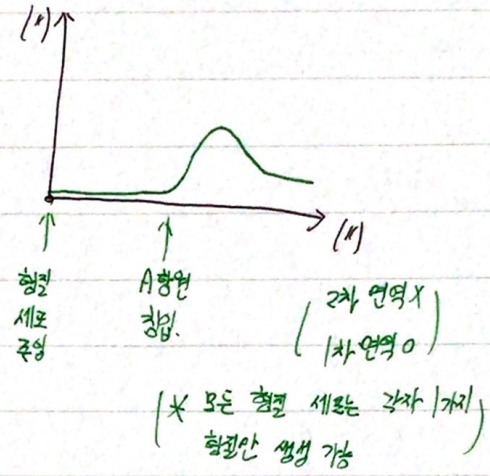 형질
세포
주입
A항원
침입.
(2차 면역X
1차 면역O)
(* 모든 형질 세포는 각자 1가지
항체만 생성 가능)